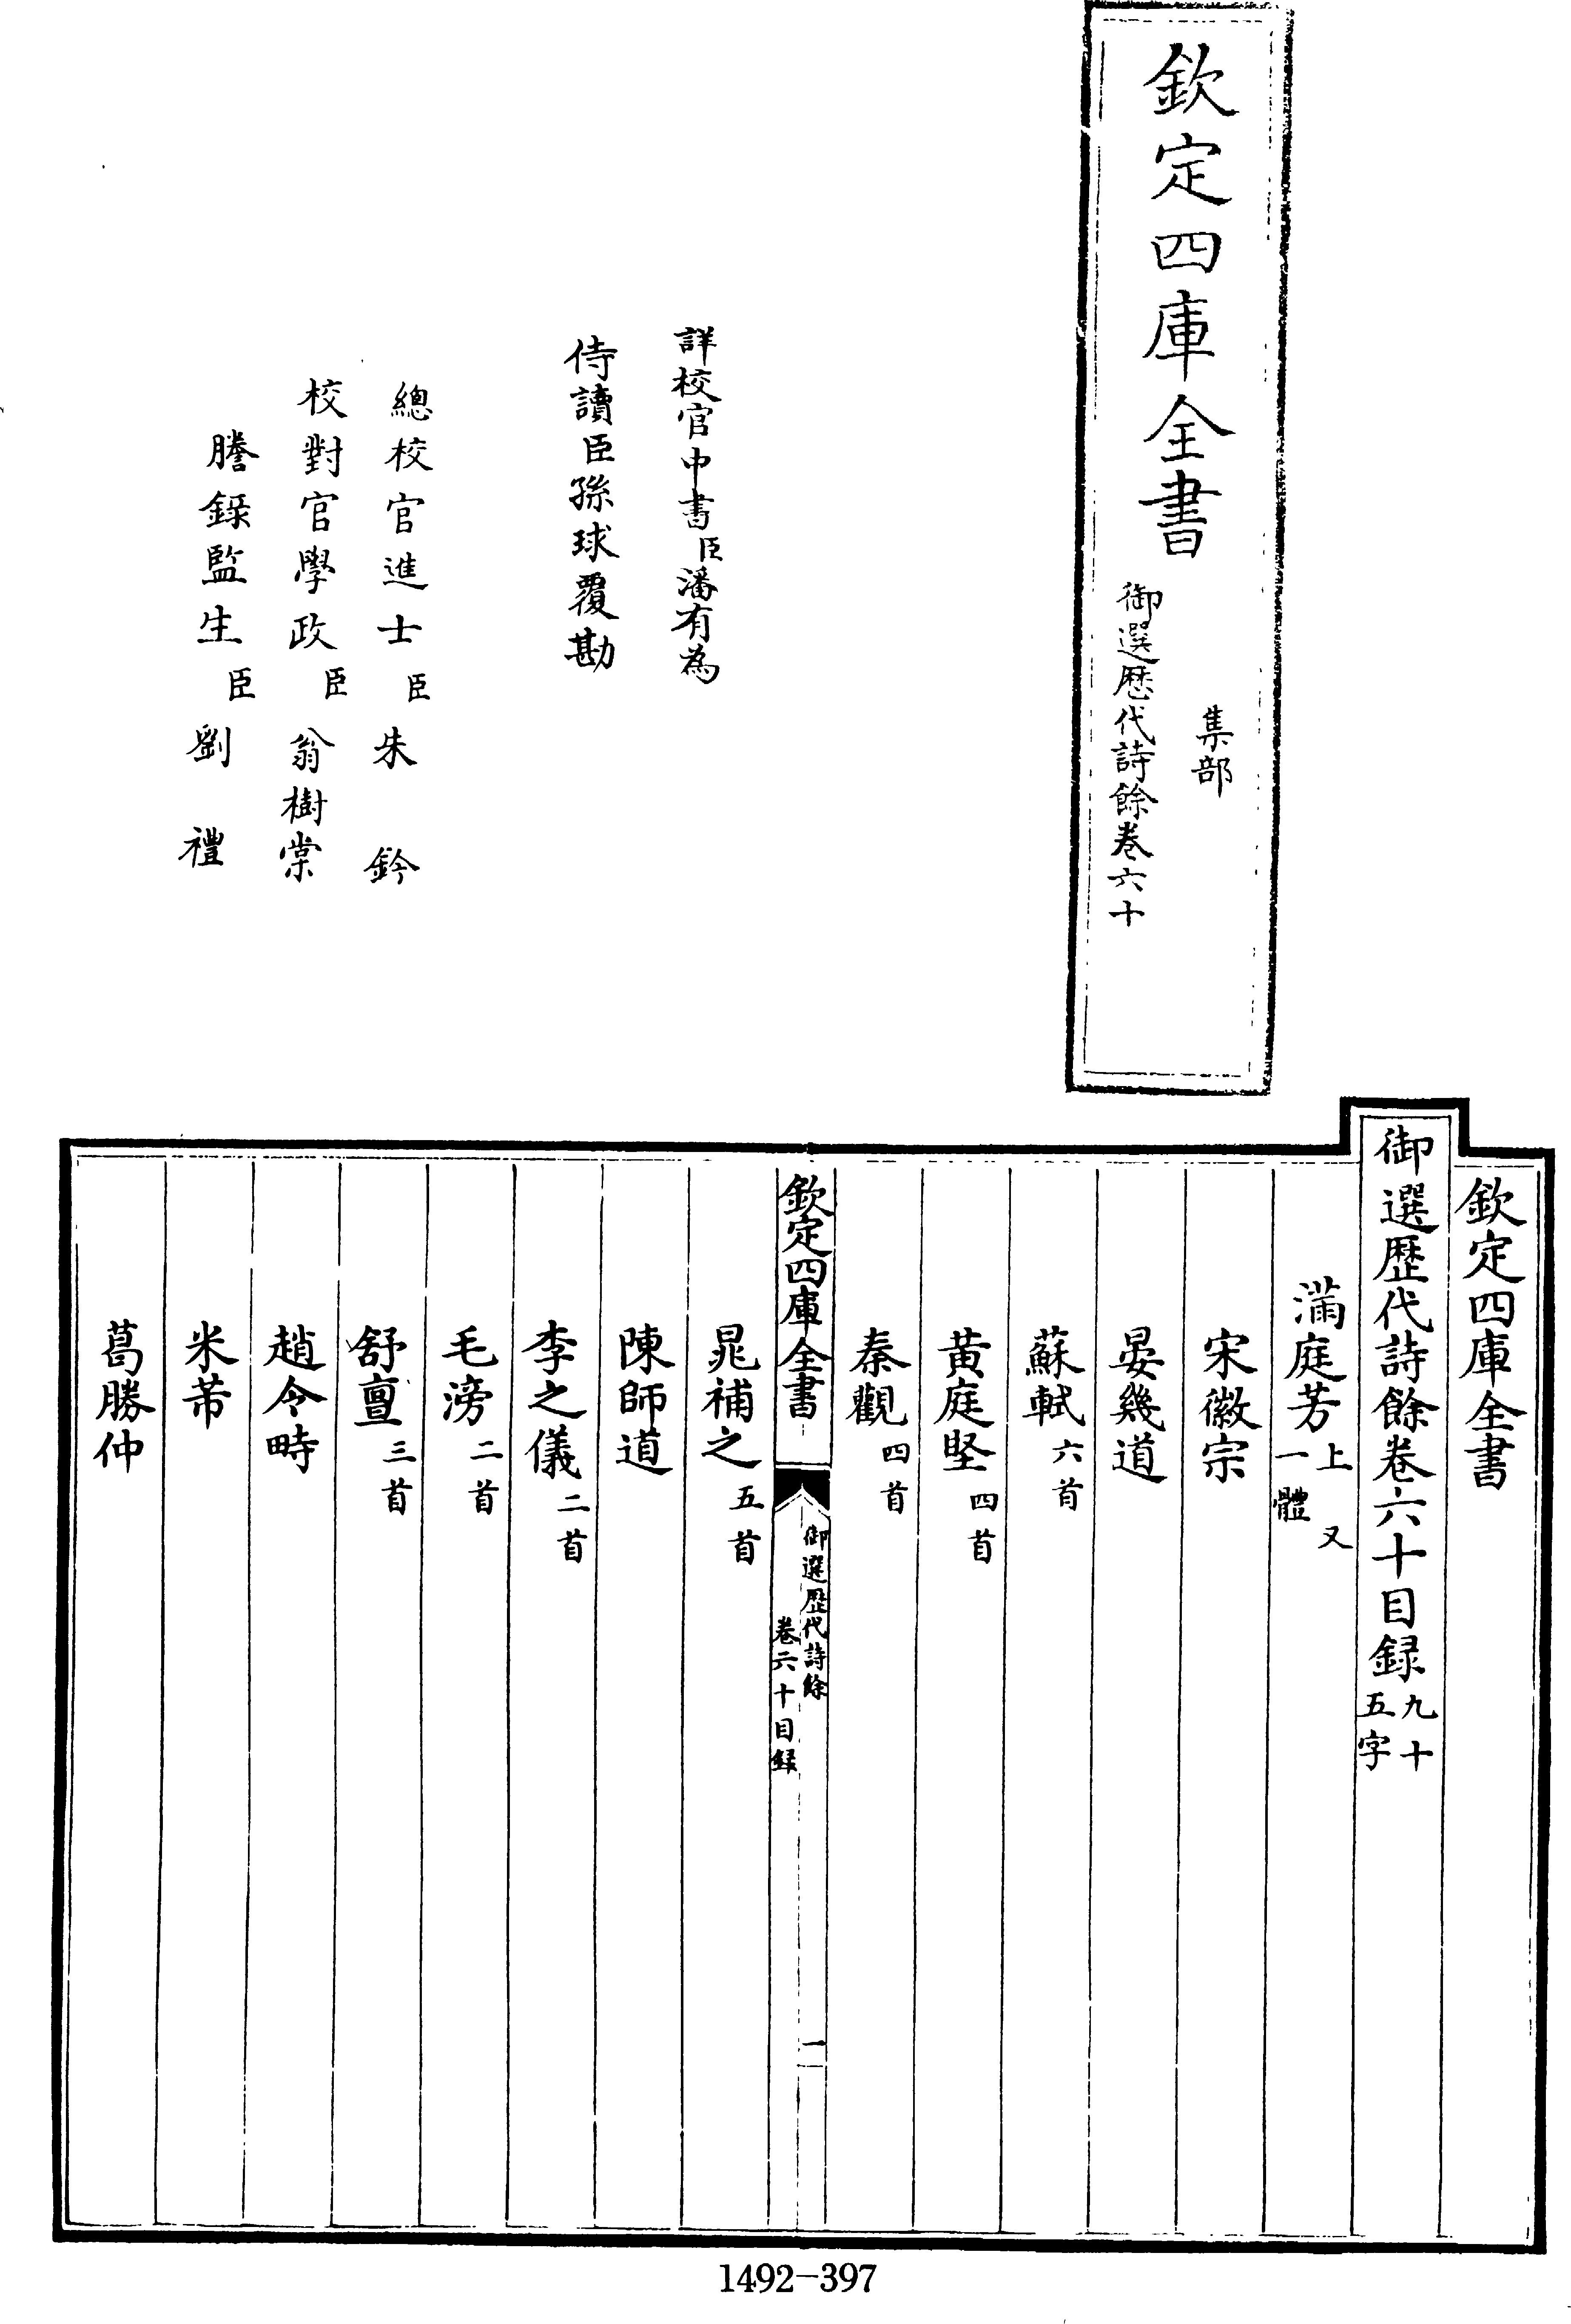 欽定四庫全書
集部
御選歷代詩餘卷六十
詳校官中書臣潘有為
侍讀臣孫球覆勘
總校官進士臣朱鈐
校對官學政臣翁樹棠
謄錄監生臣劉禮
欽定四庫全書
御選歷代詩餘卷六十目録九十五字
滿庭芳上 又一體
宋徽宗
晏幾道
蘇軾六首
黃庭堅四首
秦觀四首
欽定四庫全書
御選歷代詩餘
卷六十目録
一
晁補之五首
陳師道
李之儀二首
毛滂二首
舒亶三首
趙令畤
米芾
葛勝仲
1492-397